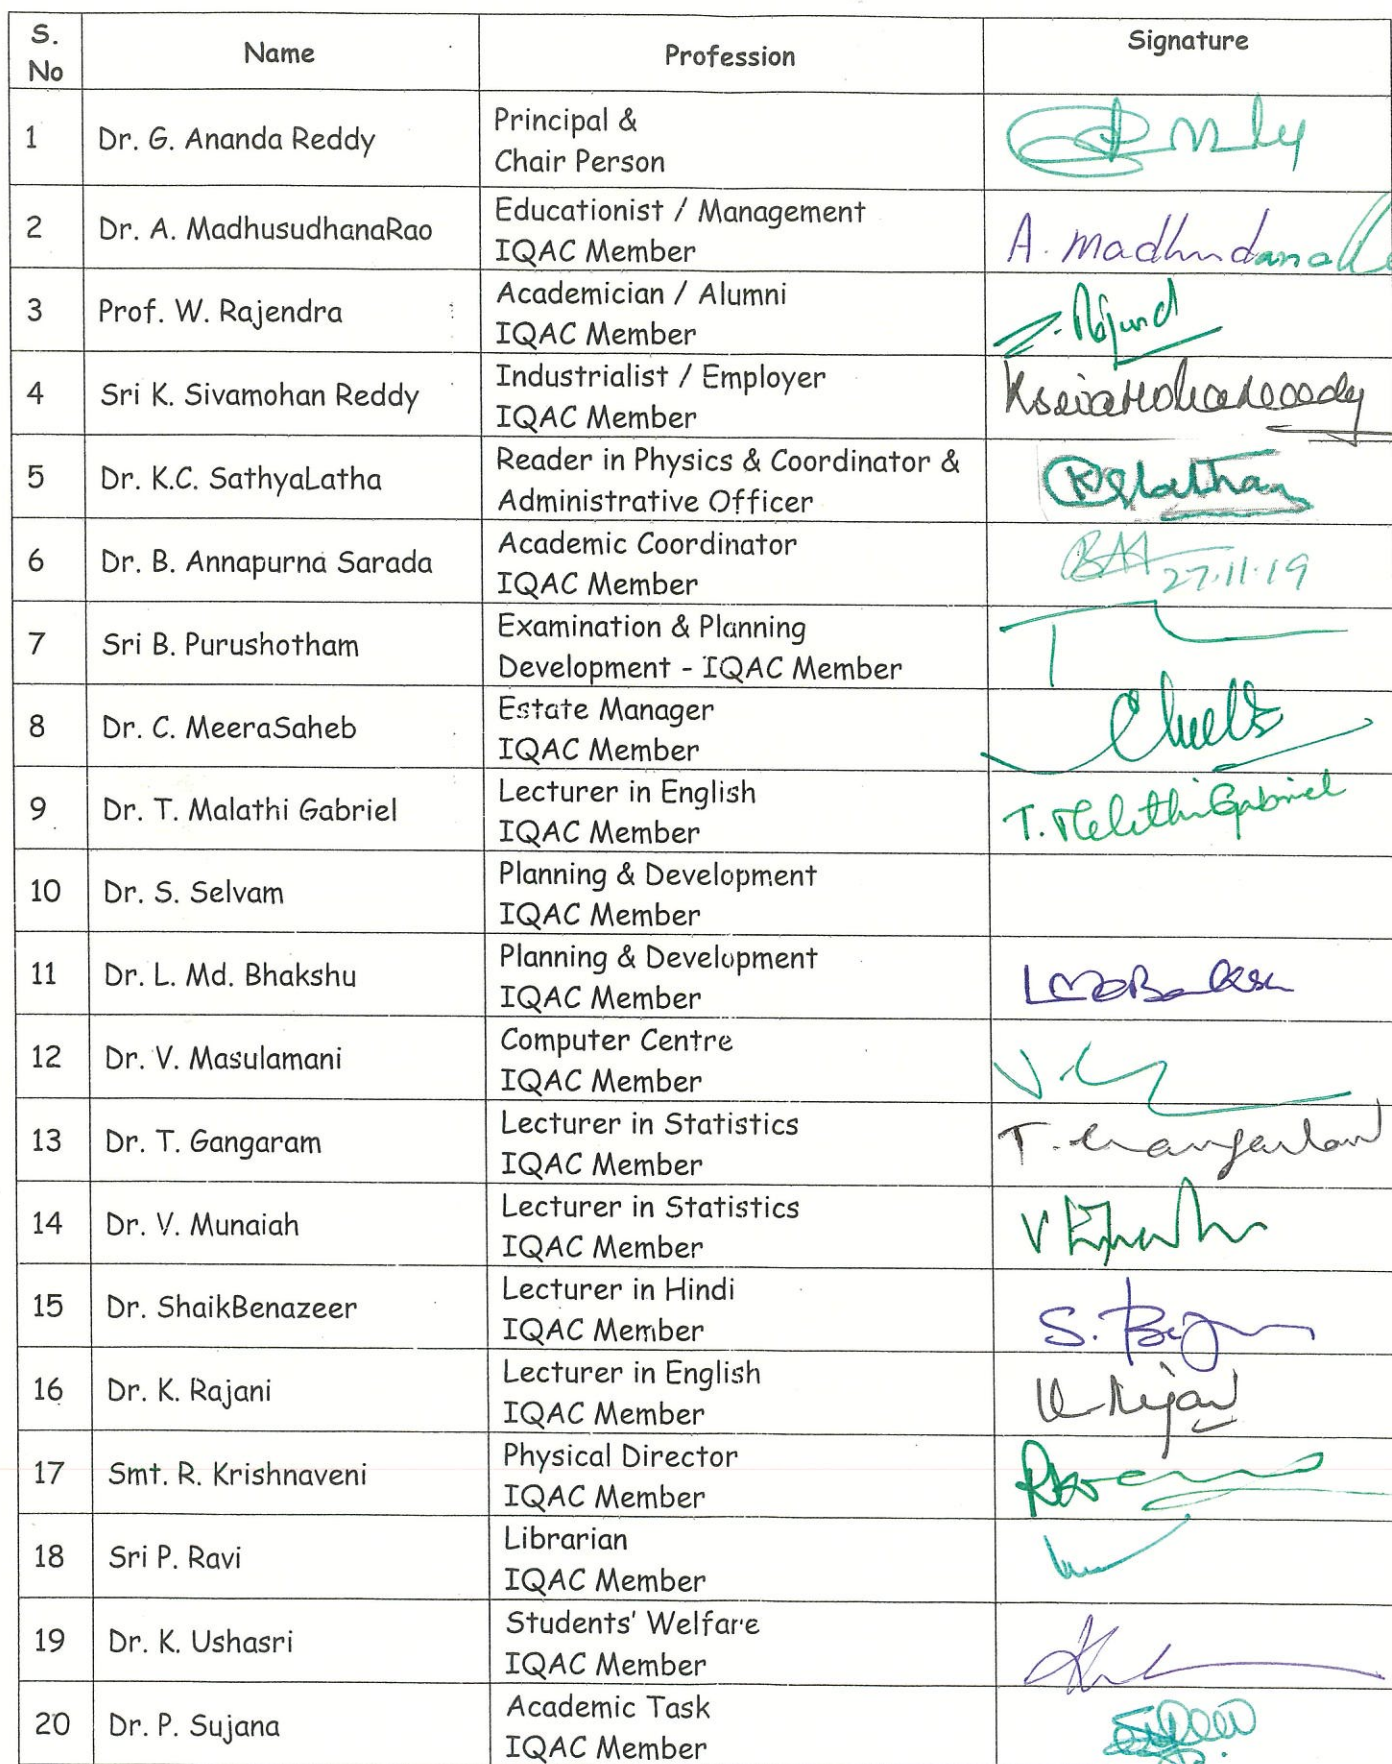 S. No Name Profession Signature
1 Dr. G. Ananda Reddy Principal &
Chair Person
2 Dr. A. MadhusudhanaRao Educationist / Management
IQAC Member
3 Prof. W. Rajendra Academician / Alumni
IQAC Member
4 Sri K. Sivamohan Reddy Industrialist / Employer
IQAC Member
5 Dr. K.C. SathyaLatha Reader in Physics & Coordinator &
Administrative Officer
6 Dr. B. Annapurna Sarada Academic Coordinator 27.11.19
IQAC Member
7 Sri B. Purushotham Examination & Planning
Development - IQAC Member
8 Dr. C. MeeraSaheb Estate Manager
IQAC Member
9 Dr. T. Malathi Gabriel Lecturer in English T. Malathi Gabriel
IQAC Member
10 Dr. S. Selvam Planning & Development
IQAC Member
11 Dr. L. Md. Bhakshu Planning & Development
IQAC Member
12 Dr. V. Masulamani Computer Centre
IQAC Member
13 Dr. T. Gangaram Lecturer in Statistics
IQAC Member
14 Dr. V. Munaiah Lecturer in Statistics
IQAC Member
15 Dr. ShaikBenazeer Lecturer in Hindi
IQAC Member
16 Dr. K. Rajani Lecturer in English
IQAC Member
17 Smt. R. Krishnaveni Physical Director
IQAC Member
18 Sri P. Ravi Librarian
IQAC Member
19 Dr. K. Ushasri Students' Welfare
IQAC Member
20 Dr. P. Sujana Academic Task
IQAC Member